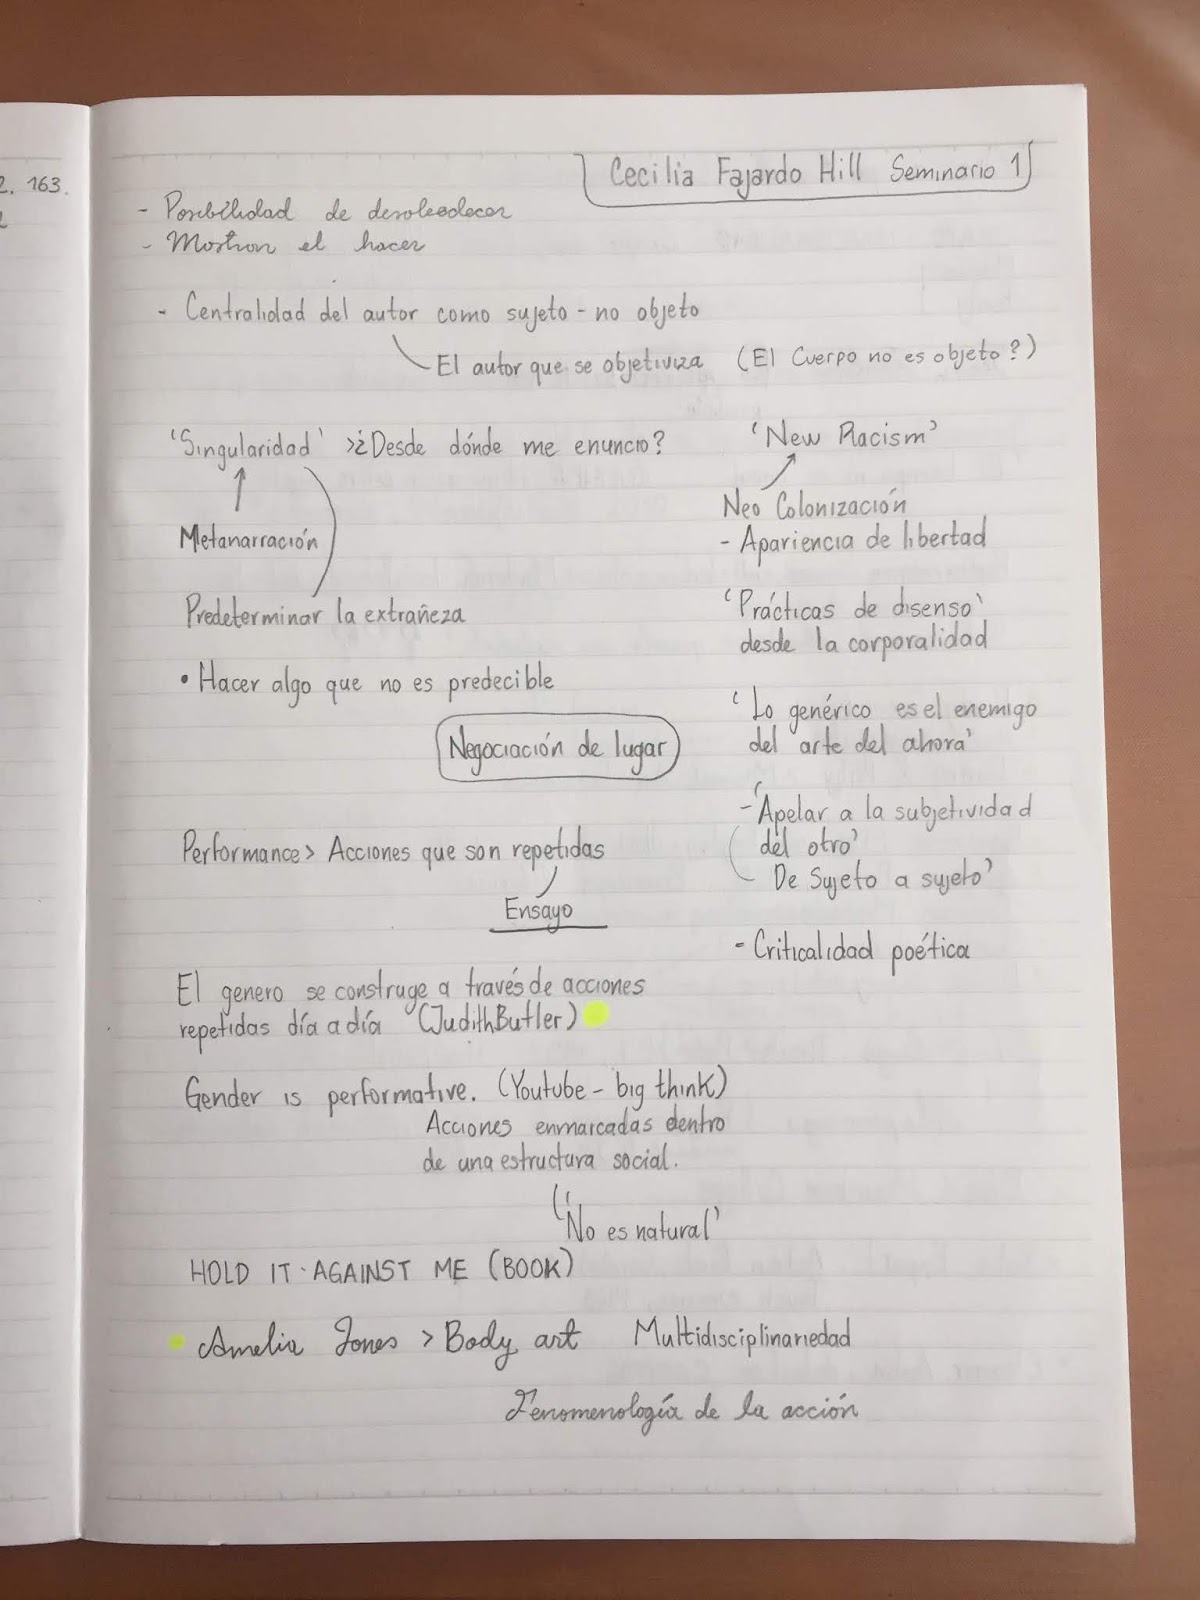 2. 163.
Cecilia Fajardo Hill Seminario 1
- Posibilidad de desobedecer
- Mostrar el hacer
- Centralidad del autor como sujeto - no objeto
El autor que se objetiviza (El Cuerpo no es objeto?)
'Singularidad' >¿Desde dónde me enuncio?
Metanarración
Predeterminar la extrañeza
• Hacer algo que no es predecible
Negociación de lugar
Performance > Acciones que son repetidas
Ensayo
El genero se construye a través de acciones
repetidas día a día (Judith Butler)
Gender is performative. (Youtube - big think)
Acciones enmarcadas dentro
de una estructura social.
'No es natural'
HOLD IT AGAINST ME (BOOK)
Amelia Jones > Body art Multidisciplinariedad
Fenomenología de la acción
'New Racism'
Neo Colonización
- Apariencia de libertad
'Prácticas de disenso'
desde la corporalidad
'Lo genérico es el enemigo
del arte del ahora'
- 'Apelar a la subjetividad
del otro'
De Sujeto a sujeto'
- Criticalidad poética